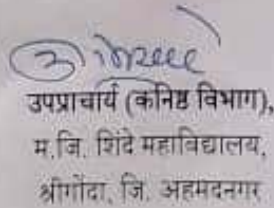 उपप्राचार्य (कनिष्ठ विभाग),
म.जि. शिंदे महाविद्यालय,
श्रीगोंदा, जि. अहमदनगर